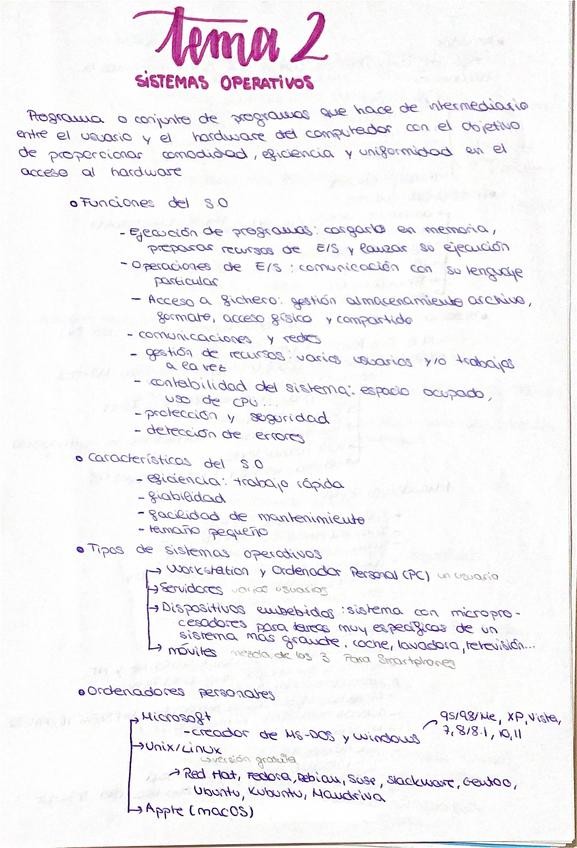 tema 2
SISTEMAS OPERATIVOS
Programa o conjunto de programas que hace de intermediario
entre el usuario y el hardware del computador con el objetivo
de proporcionar comodidad, eficiencia y uniformidad en el
acceso al hardware
• Funciones del SO
- Ejecución de programas: cargarlo en memoria,
preparar recursos de E/S y lanzar su ejecución
- Operaciones de E/S: comunicación con su lenguaje
particular
- Acceso a fichero: gestión almacenamiento archivo,
formato, acceso físico y compartido
- comunicaciones y redes
- gestión de recursos: varios usuarios y/o trabajos
a la vez
- contabilidad del sistema: espacio ocupado,
uso de CPU...
- protección y seguridad
- detección de errores
• Características del SO
- eficiencia: trabajo rápida
- fiabilidad
- facilidad de mantenimiento
- tamaño pequeño
• Tipos de sistemas operativos
→ Workstation y Ordenador Personal (PC) un usuario
→ Servidores varios usuarios
→ Dispositivos embebidos: sistema con micropro-
cesadores para tareas muy específicas de un
sistema más grande, coche, lavadora, televisión...
→ móviles mezcla de los 3 Para Smartphones
• Ordenadores personales
→ Microsoft
- creador de MS-DOS y Windows
95/98/Me, XP, Vista,
7, 8/8.1, 10, 11
→ Unix/Linux
↳ versión gratuita
→ Red Hat, Fedora, Debian, Suse, Slackware, Gentoo,
Ubuntu, Kubuntu, Mandriva
→ Apple (macOS)